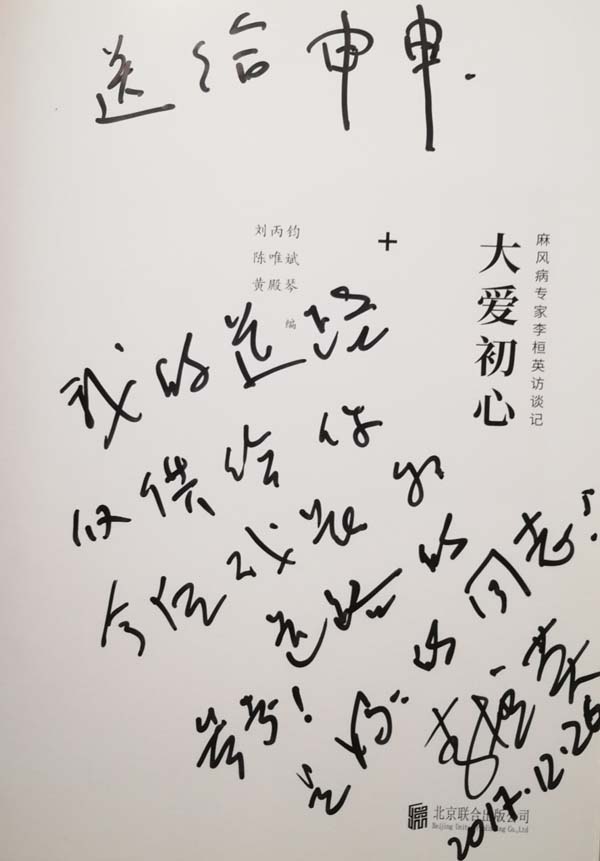 送给申申.
麻风病专家李桓英访谈记
大爱初心
刘丙钧
陈唯斌
黄殿琴
编
我的道路
仅供给你
今后
道路的
同志!
参考!
李桓英
2017.12.26
北京联合出版公司
Beijing United Publishing Co.,Ltd